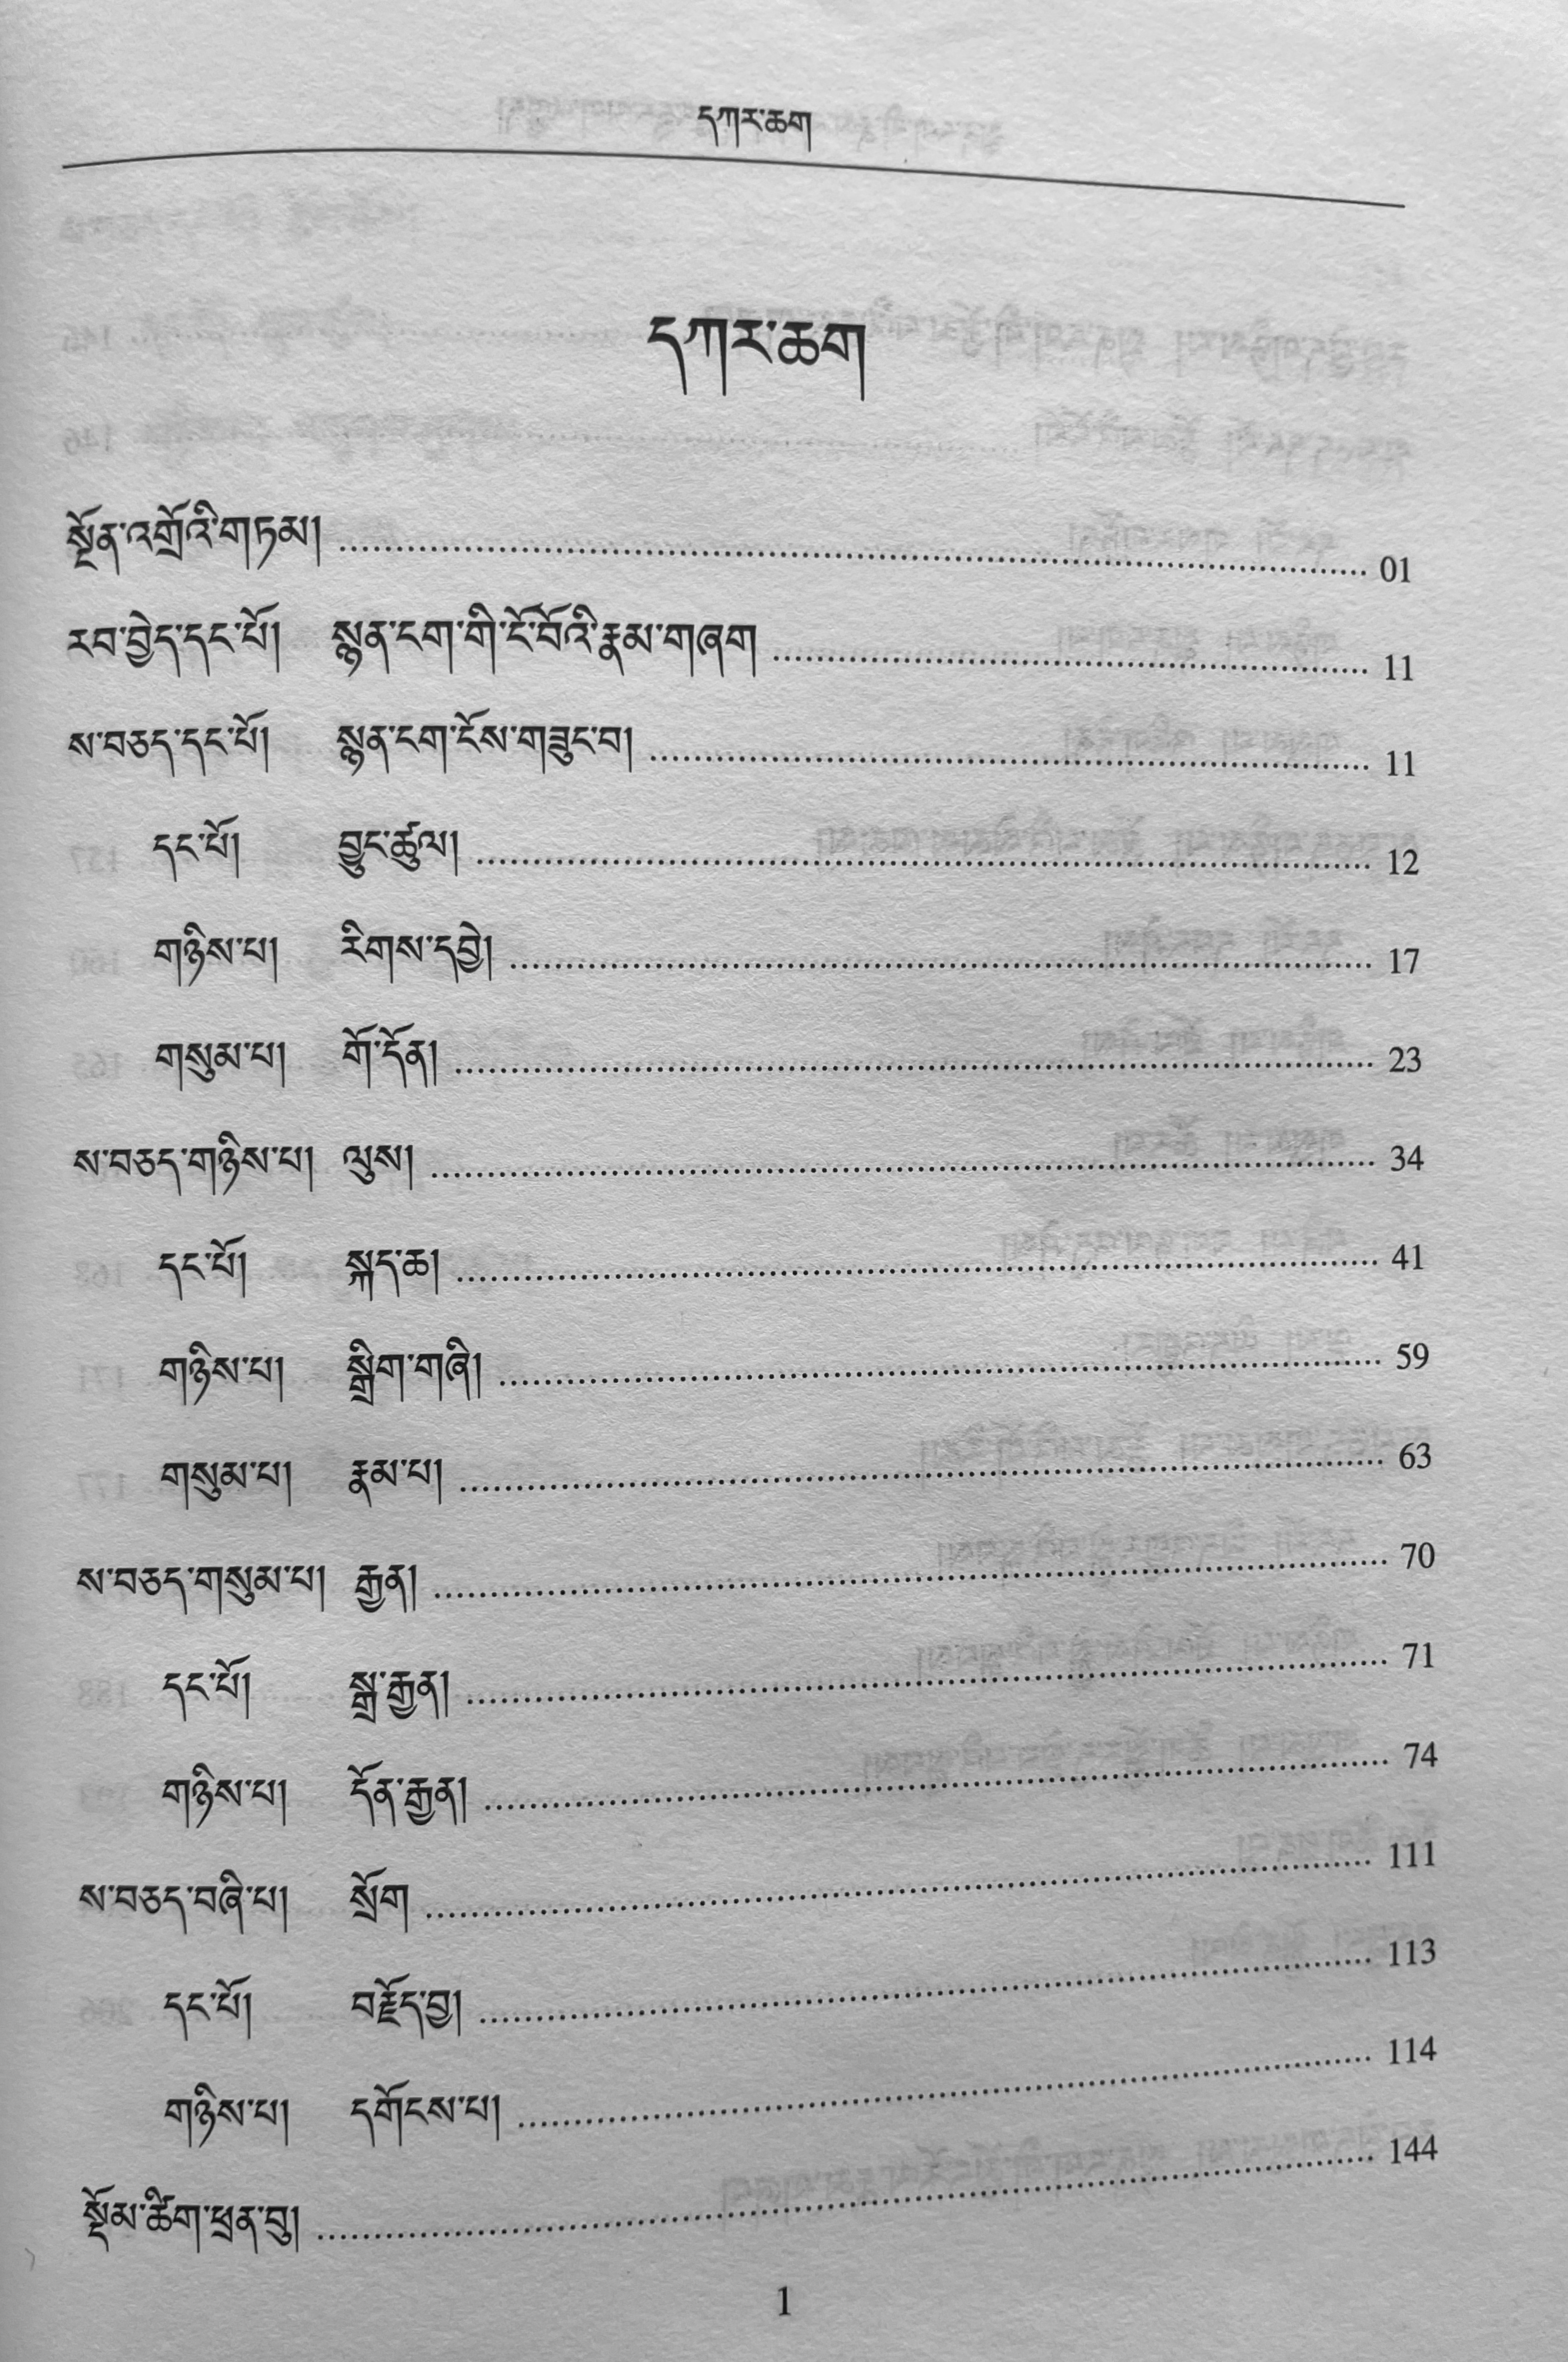 དཀར་ཆག
དཀར་ཆག
སྔོན་འགྲོའི་གཏམ། ........ 01
རབ་བྱེད་དང་པོ། སྙན་ངག་གི་ངོ་བོའི་རྣམ་གཞག ........ 11
ས་བཅད་དང་པོ། སྙན་ངག་ངོས་གཟུང་བ། ........ 11
དང་པོ། བྱུང་ཚུལ། ........ 12
གཉིས་པ། རིགས་དབྱེ། ........ 17
གསུམ་པ། གོ་དོན། ........ 23
ས་བཅད་གཉིས་པ། ལུས། ........ 34
དང་པོ། སྐད་ཆ། ........ 41
གཉིས་པ། སྒྲིག་གཞི། ........ 59
གསུམ་པ། རྣམ་པ། ........ 63
ས་བཅད་གསུམ་པ། རྒྱན། ........ 70
དང་པོ། སྒྲ་རྒྱན། ........ 71
གཉིས་པ། དོན་རྒྱན། ........ 74
ས་བཅད་བཞི་པ། སྲོག ........ 111
དང་པོ། བརྗོད་བྱ། ........ 113
གཉིས་པ། དགོངས་པ། ........ 114
སྡོམ་ཚིག་ཕྲན་བུ། ........ 144
1